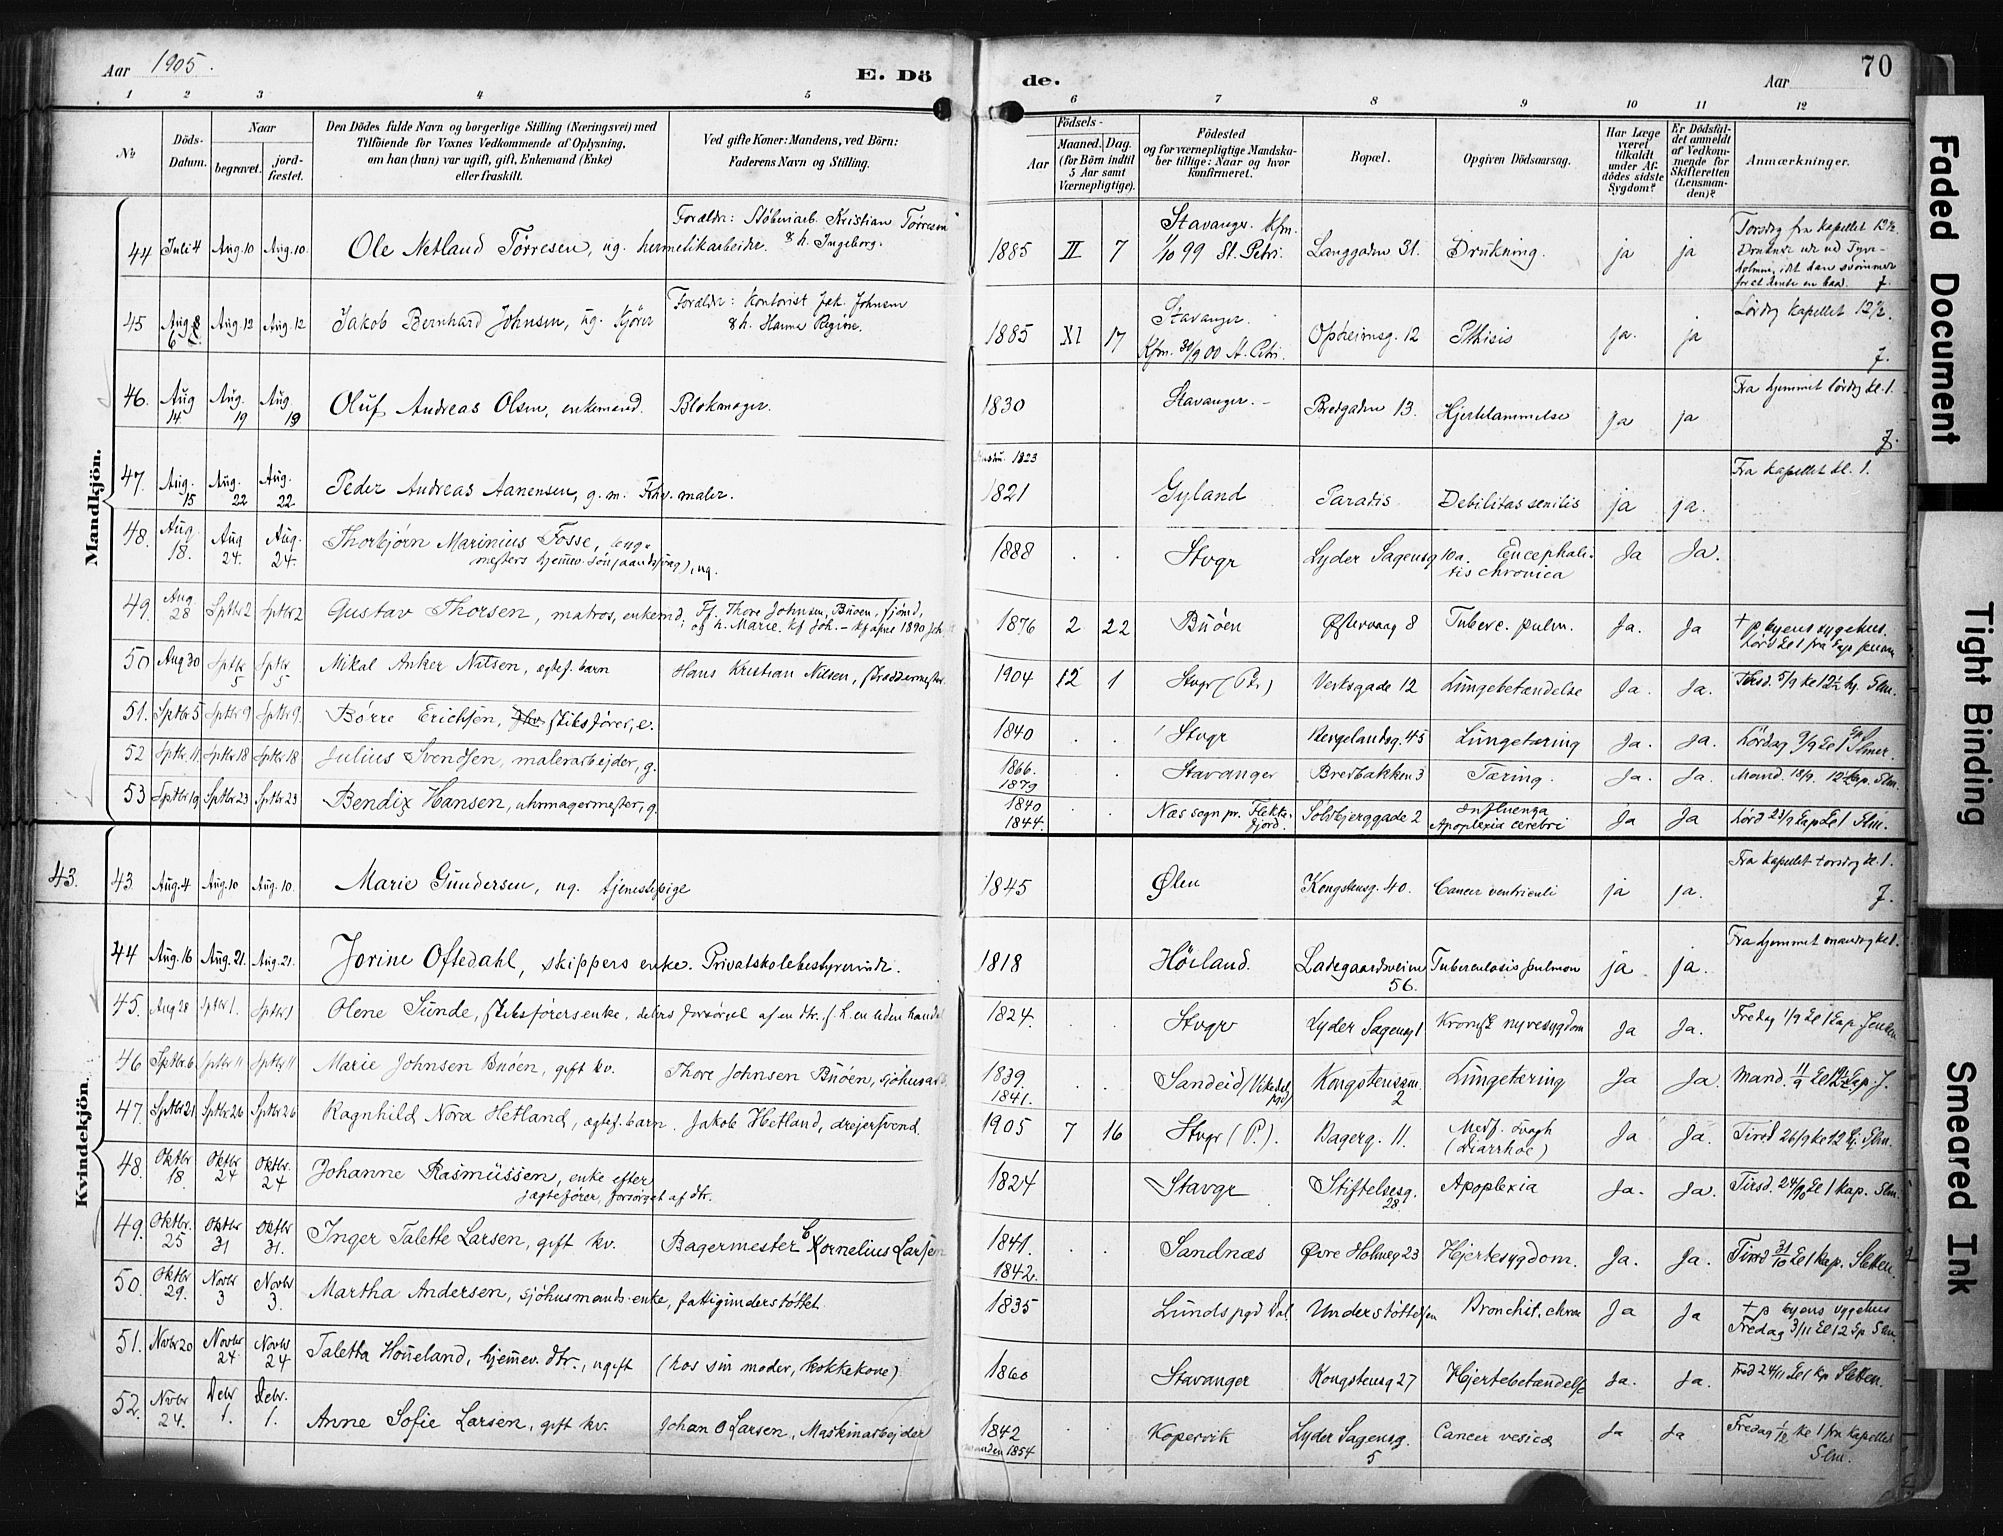 Aar 1905.
E. Döde.
Aar
70
1 2 3 4 5 6 7 8 9 10 11 12
No.
Döds-Datum.
Naar
begravet.
jordfæstet.
Den Dödes fulde Navn og borgerlige Stilling (Næringsvei) med
Tilföiende for Voxnes Vedkommende af Oplysning,
om han (hun) var ugift, gift, Enkemand (Enke)
eller fraskilt.
Ved gifte Koner: Mandens, ved Börn:
Faderens Navn og Stilling.
Födsels-
Aar
Maaned. Dag.
(for Börn indtil
5 Aar samt
Værnepligtige).
Födested
og for værnepligtige Mandska-
ber tillige: Naar og hvor
konfirmeret.
Bopæl.
Opgiven Dödsaarsag.
Har Læge
været
tilkaldt
under Af-
dödes sidste
Sygdom?
Er Dödsfal-
det anmeldt
af Vedkom-
mende for
Skifteretten
(Lensman-
den)?
Anmærkninger.
Mandkjön.
44 Juli 4 Aug. 10 Aug. 10. Ole Netland Tørresen, ug. hermetikarbeider. Forældr: Støberiarb. Kristian Tørresen & h. Ingeborg. 1885 II 7 Stavanger. Kfm. 1/10 99 St. Petri. Langgaden 31. Drukning. ja ja Torsdag fra kapellet 12½
45 Aug 8 6 Aug. 12 Aug. 12 Jakob Bernhard Johnsen, ug. kjører Forældr: Kontorist Jak. Johnsen & h. Hanna Regine. 1885 XI 17 Stavanger. Kfm. 30/9 00 St. Petri. Opheimsg. 12 Pthisis ja. ja Lørdag kapellet 12½. J.
46. Aug 14 Aug. 19 Aug. 19 Oluf Andreas Olsen, enkemand. Blokmager. 1830 Stavanger. Bredgaden 13. Hjertelammelse Ja ja Fra hjemmet lördag kl. 1. J.
47. Aug. 15 Aug. 22 Aug. 22 Peder Andreas Aanensen, g. m. Fhv. maler. 1823 1821 Gyland Paradis Debilitas senilis ja ja. Fra kapellet kl. 1.
48. Aug 18. Aug 24. Aug. 24. Thorbjørn Marinius Fosse, mesters hjemmev. Søn (aandssvag), ug. 1888 Stvgr Lyder Sagensg 10a. Encephali- tis chronica Ja Ja.
49. Aug 28 Sptbr 2 Sptbr 2 Gustav Thorsen, matros, enkemd; Ff. Thore Johnsen, Buøen, og h. Marie. 1876 2 22 Buöen Østervaag 8 Tuberc. pulm. Ja. Ja + p. byens sygehus.
50. Aug 30 Sptbr 5 Sptbr 5 Mikal Anker Nilsen, ægtef. barn Hans Kristian Nilsen, skræddermester. 1904 12 1 Stvgr (P.) Verksgade 12 Lungebetændelse Ja. Ja. Tirsd. 5/9 kl 12½ hj. Slm.
51. Sptbr 5 Sptbr 9 Sptbr 9. Børre Erichsen, fhv. skibsfører, e. 1840 Stvgr Hergelandsg. 45 Lungetæring Ja. Ja. Lördag 9/9 kl 1
52 Sptbr. 11. Sptbr 18 Sptbr 18 Julius Svendsen, malerarbejder, g. 1866. 1879 Stavanger Bredbakken 3 Tæring. Ja. Ja. Mand. 18/9. 12½ kap. Slm.
53 Sptbr 19 Sptbr 23 Sptbr 23 Bendix Hansen, uhrmagermester, g. 1840 1844. Næs sogn pr. Flekke- fjord. Sölvbjerggade 2 Influenza Apoplexia cerebri Ja Ja Lörd 23/9 kap kl 1 Slm.
Kvindekjön.
43. 43 Aug. 4 Aug. 10 Aug. 10. Marie Gundersen, ug. tjenestepige 1845 Ølen Kongstensg. 40. Cancer ventriculi ja ja. Fra kapellet torsdag kl. 1. J.
44 Aug. 16 Aug. 21. Aug. 21. Jorine Oftedahl, skippers enke. Privatskolebestyrerinde. 1818 Höiland. Ladegaardsveien 56. Tuberculosis pulmon ja ja. Fra hjemmet mandag kl 1.
45. Aug 28 Sptbr 1. Sptbr 1 Olene Sunde, skibsførersenke, delvis forsörget af en dtr. 1824. Stvgr Lyder Sagensg 1 Kronisk nyresygdom Ja Ja. Fredag 1/9 kl 1 kap. Jensen
46 Sptbr. 6 Sptbr 11 Sptbr 11 Marie Johnsen Buöen, gift kv. Thore Johnsen Buöen, sjöhusarb. 1839. 1841. Sandeid (Vikedal pgd) Kongstensgm. 2 Lungetæring Ja Ja. Mand. 11/9 kl 12½ kap. J.
47. Sptbr 21 Sptbr 26 Sptbr 26 Ragnhild Nora Hetland, ægtef. barn. Jakob Hetland, drejersvend. 1905 7 16 Stvgr (P.). Bagerg. 11. Medf. svagh (Diarrhoe) Ja Ja. Tirsd 26/9 kl 12 hj. Slm.
48. Oktbr 18. Oktbr 24 Oktbr. 24 Johanne Rasmussen, enke efter jægtefører, forsörget af dtr. 1824 Stavgr Stiftelsesg. 28. Apoplexia Ja. Ja. Tirsd. 24/10 kl 1 kap. Slm.
49. Oktbr. 25 Oktbr 31 Oktbr 31. Inger Talette Larsen, gift kv. Bagermester Kornelius Larsen 1841. 1842. Sandnæs Øvre Holmeg 23 Hjertesygdom. Ja. Ja. Tirsd 31/10 kl 1 kap. Sletten.
50. Oktbr 29. Novbr 3 Novbr 3. Martha Andersen, sjöhusmands enke, fattigunderstöttet. 1835 Lunds pgd Dal. Understöttelsen Bronchit. chron Ja Ja + p byens sygehus Fredag 3/11 kl 12 kp Slm.
51. Novbr 20 Novbr 24. Novbr 24 Taletta Houeland, hjemmev. dtr., ugift (hos sin moder, kokkekone) 1860 Stavanger Kongstensg 27 Hjertebetændelse Ja. Ja. Fred 24/11 kl 1 kp Sletten.
52. Novbr 24. Debr 1. Debr. 1. Anne Sofie Larsen, gift kv. Johan O Larsen, Maskinarbejder 1842 manden 1854 Kopervik Lyder Sagensg. 5 Cancer vesica Ja Ja Fredag 1/12 kl 1 fra kapellet Slm.
Faded Document
Tight Binding
Smeared Ink